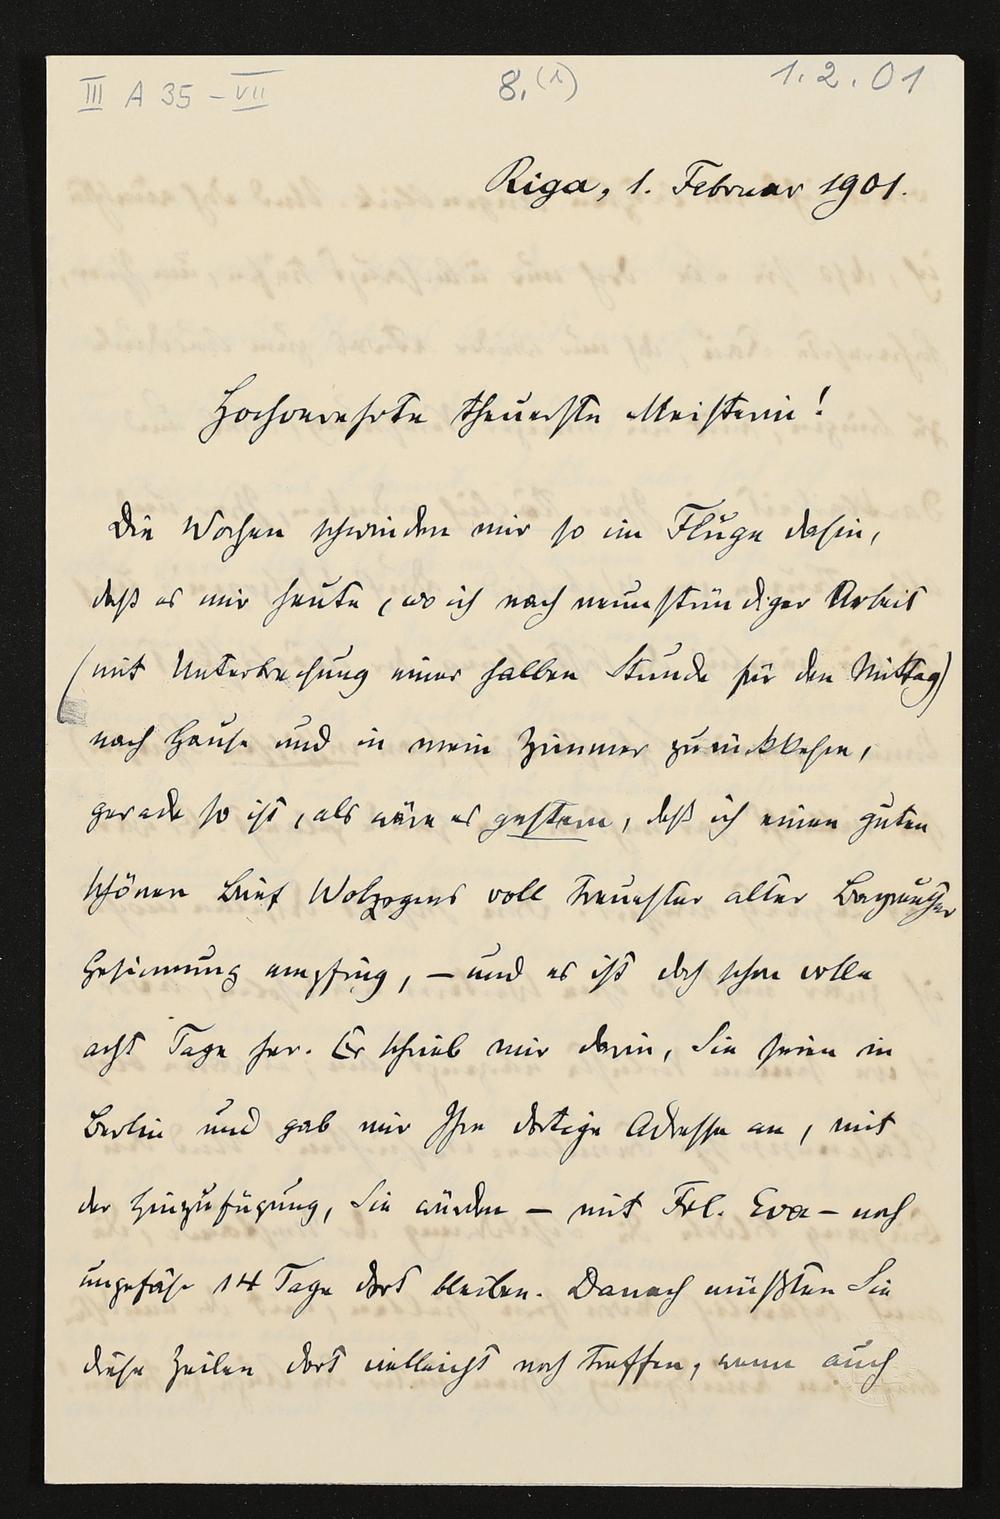 III A 35 - VII
8. (1)
1.2.01
Riga, 1. Februar 1901.
Hochverehrte theuerste Meisterin!
Die Wochen schwinden mir so im Fluge dahin,
daß es mir heute, wo ich nach neunstündiger Arbeit
(mit Unterbrechung einer halben Stunde für den Mittag)
nach Hause und in mein Zimmer zurückkehre,
gerade so ist, als wäre es gestern, daß ich einen guten
schönen Brief Wolzogens voll treuester alter Bayreuther
Gesinnung empfing, – und es ist doch schon volle
acht Tage her. Er schrieb mir darin, Sie seien in
Berlin und gab mir Ihre dortige Adresse an, mit
der Hinzufügung, Sie würden – mit Frl. Eva – noch
ungefähr 14 Tage dort bleiben. Danach müßten Sie
diese Zeilen dort vielleicht noch treffen, wenn auch